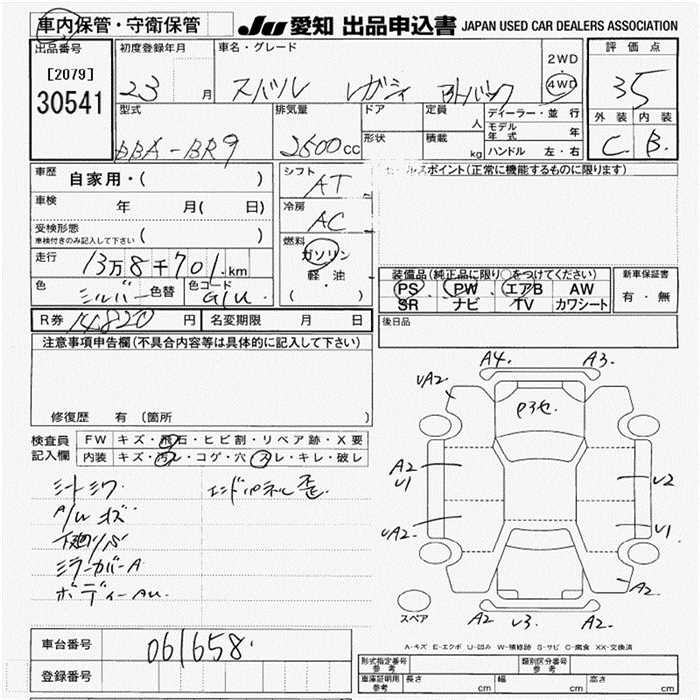 車内保管・守衛保管
JU 愛知 出品申込書 JAPAN USED CAR DEALERS ASSOCIATION
出品番号
[2079]
30541
初度登録年月
23 月
車名・グレード
スバル レガシィ アウトバック
2WD
4WD
評価点
35
型式
DBA-BR9
排気量
2500cc
ドア
形状
定員
人
積載
kg
ディーラー・並行
モデル年式 年
ハンドル 左・右
外装 内装
C B
車歴
自家用・( )
車検
年 月( 日)
受検形態
車検付きのみ記入して下さい ( )
走行
13万8千701km
色
シルバー 色替
色コード
G1U
シフト
AT
冷房
AC
燃料
ガソリン
軽油
( )
セールスポイント(正常に機能するものに限ります)
装備品(純正品に限り○をつけてください)
PS PW エアB AW
SR ナビ TV カワシート
新車保証書
有・無
R券 14820 円
名変期限 月 日
後日品
注意事項申告欄(不具合内容等は具体的に記入して下さい)
修復歴 有 (箇所 )
検査員
記入欄
FW キズ・飛石・ヒビ割・リペア跡・X要
内装 キズ・汚レ・コゲ・穴・スレ・キレ・破レ
シートシワ
エンドパネル歪
A/Wキズ
下廻りサビ
ミラーカバーA
ボディーAU.
A4. A3.
UA2.
P3セ.
A2
U1
U2
UA2.
U1.
A2
A2 U3. A2.
スペア
A-キズ E-エクボ U-凹み W-補修跡 S-サビ C-腐食 XX-交換済
車台番号
061658
登録番号
形式指定番号
参考
類別区分番号
参考
車庫証明用
参考
長さ cm
幅 cm
高さ cm